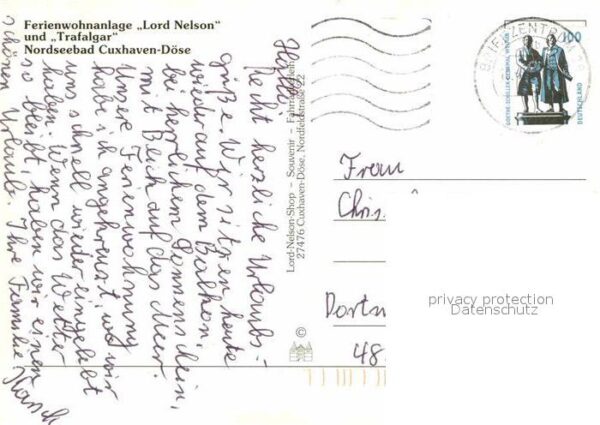 Ferienwohnanlage „Lord Nelson“
und „Trafalgar“
Nordseebad Cuxhaven-Döse
Recht herzliche Urlaubs-
grüße. Wir sitzen heute
wieder auf dem Balkon,
bei herrlichem Sonnenschein,
mit Blick auf das Meer.
Unsere Ferienwohnung
habe ich angekreuzt wo wir
uns schnell wieder eingelebt
haben. Wenn das Wetter
so bleibt, haben wir einen
schönen Urlaub. Ihre Familie
Lord-Nelson-Shop – Souvenir –
27476 Cuxhaven-Döse, Nordfeldstraße 22
©
BRIEFZENTRUM
100
GOETHE-SCHILLER-DENKMAL WEIMAR
DEUTSCHLAND
Frau
Chris
Dortm
48
privacy protection
Datenschutz